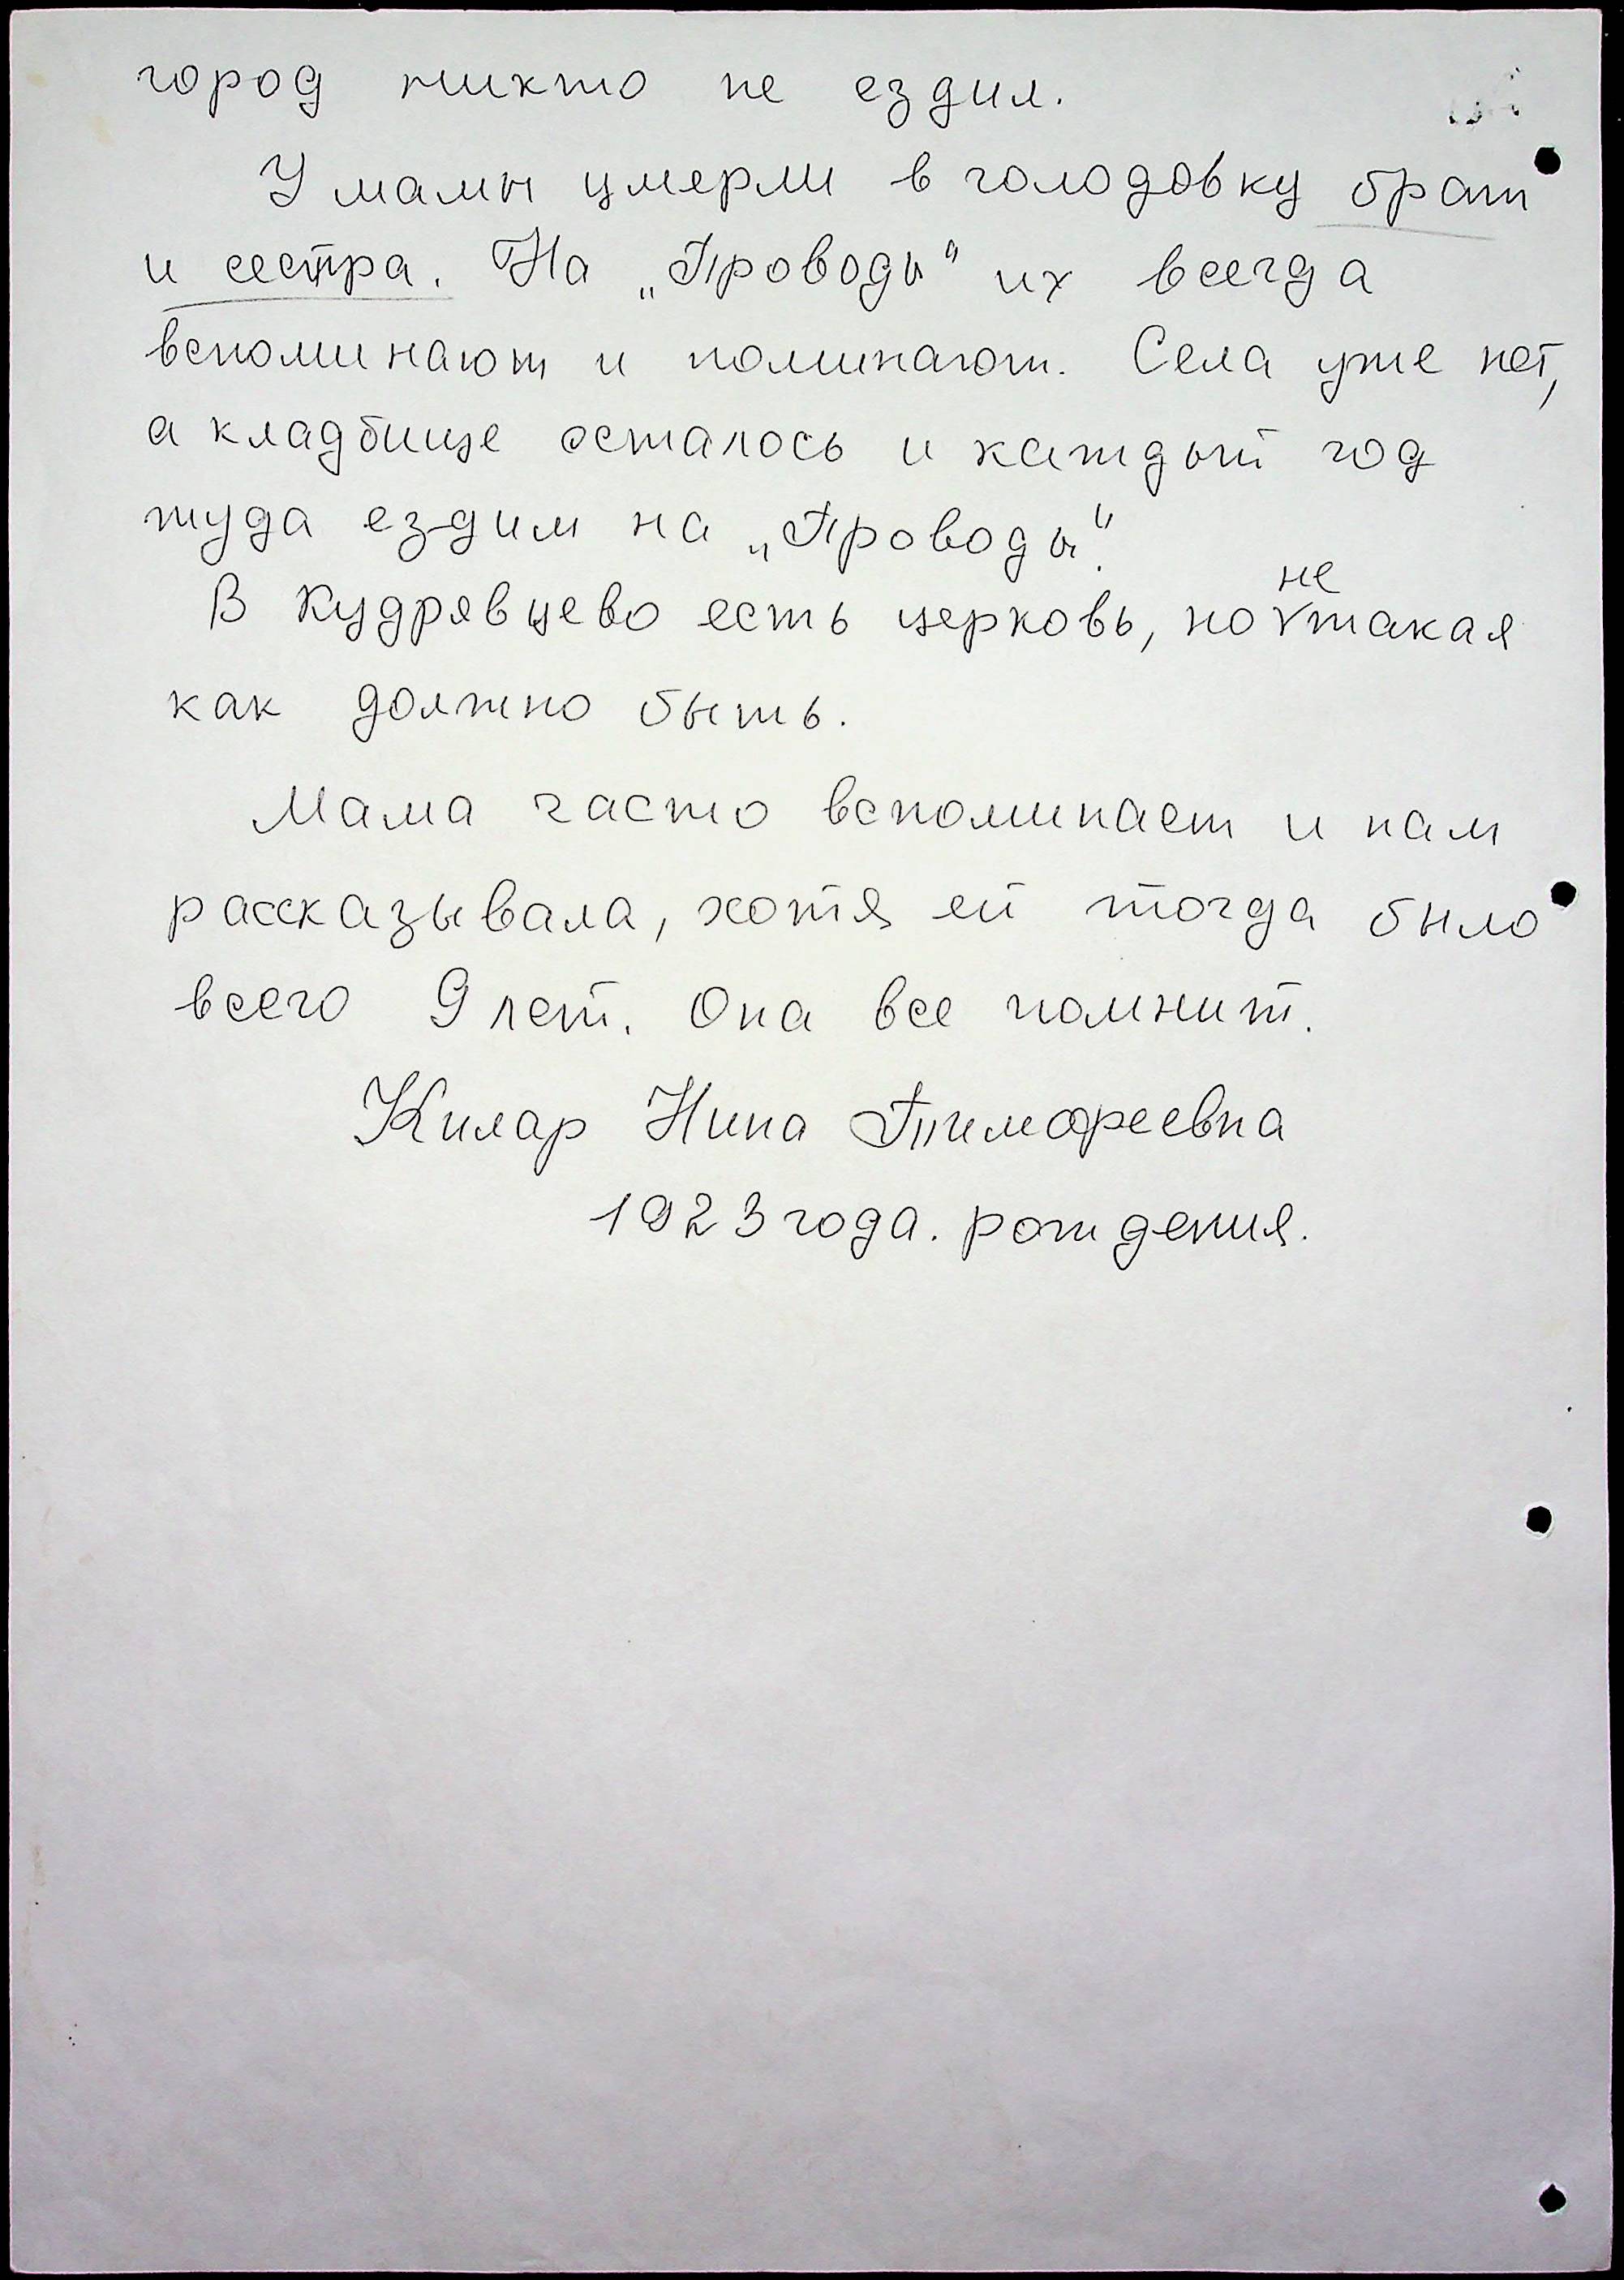 город никто не ездил.
У мамы умерли в голодовку брат
и сестра. На „Проводы“ их всегда
вспоминают и поминают. Села уже нет,
а кладбище осталось и каждый год
туда ездим на „Проводы“.
В Кудрявцево есть церковь, но не такая
как должно быть.
Мама часто вспоминает и нам
рассказывала, хотя ей тогда было
всего 9 лет. Она все помнит.
Килар Нина Тимофеевна
1923 года. рождения.